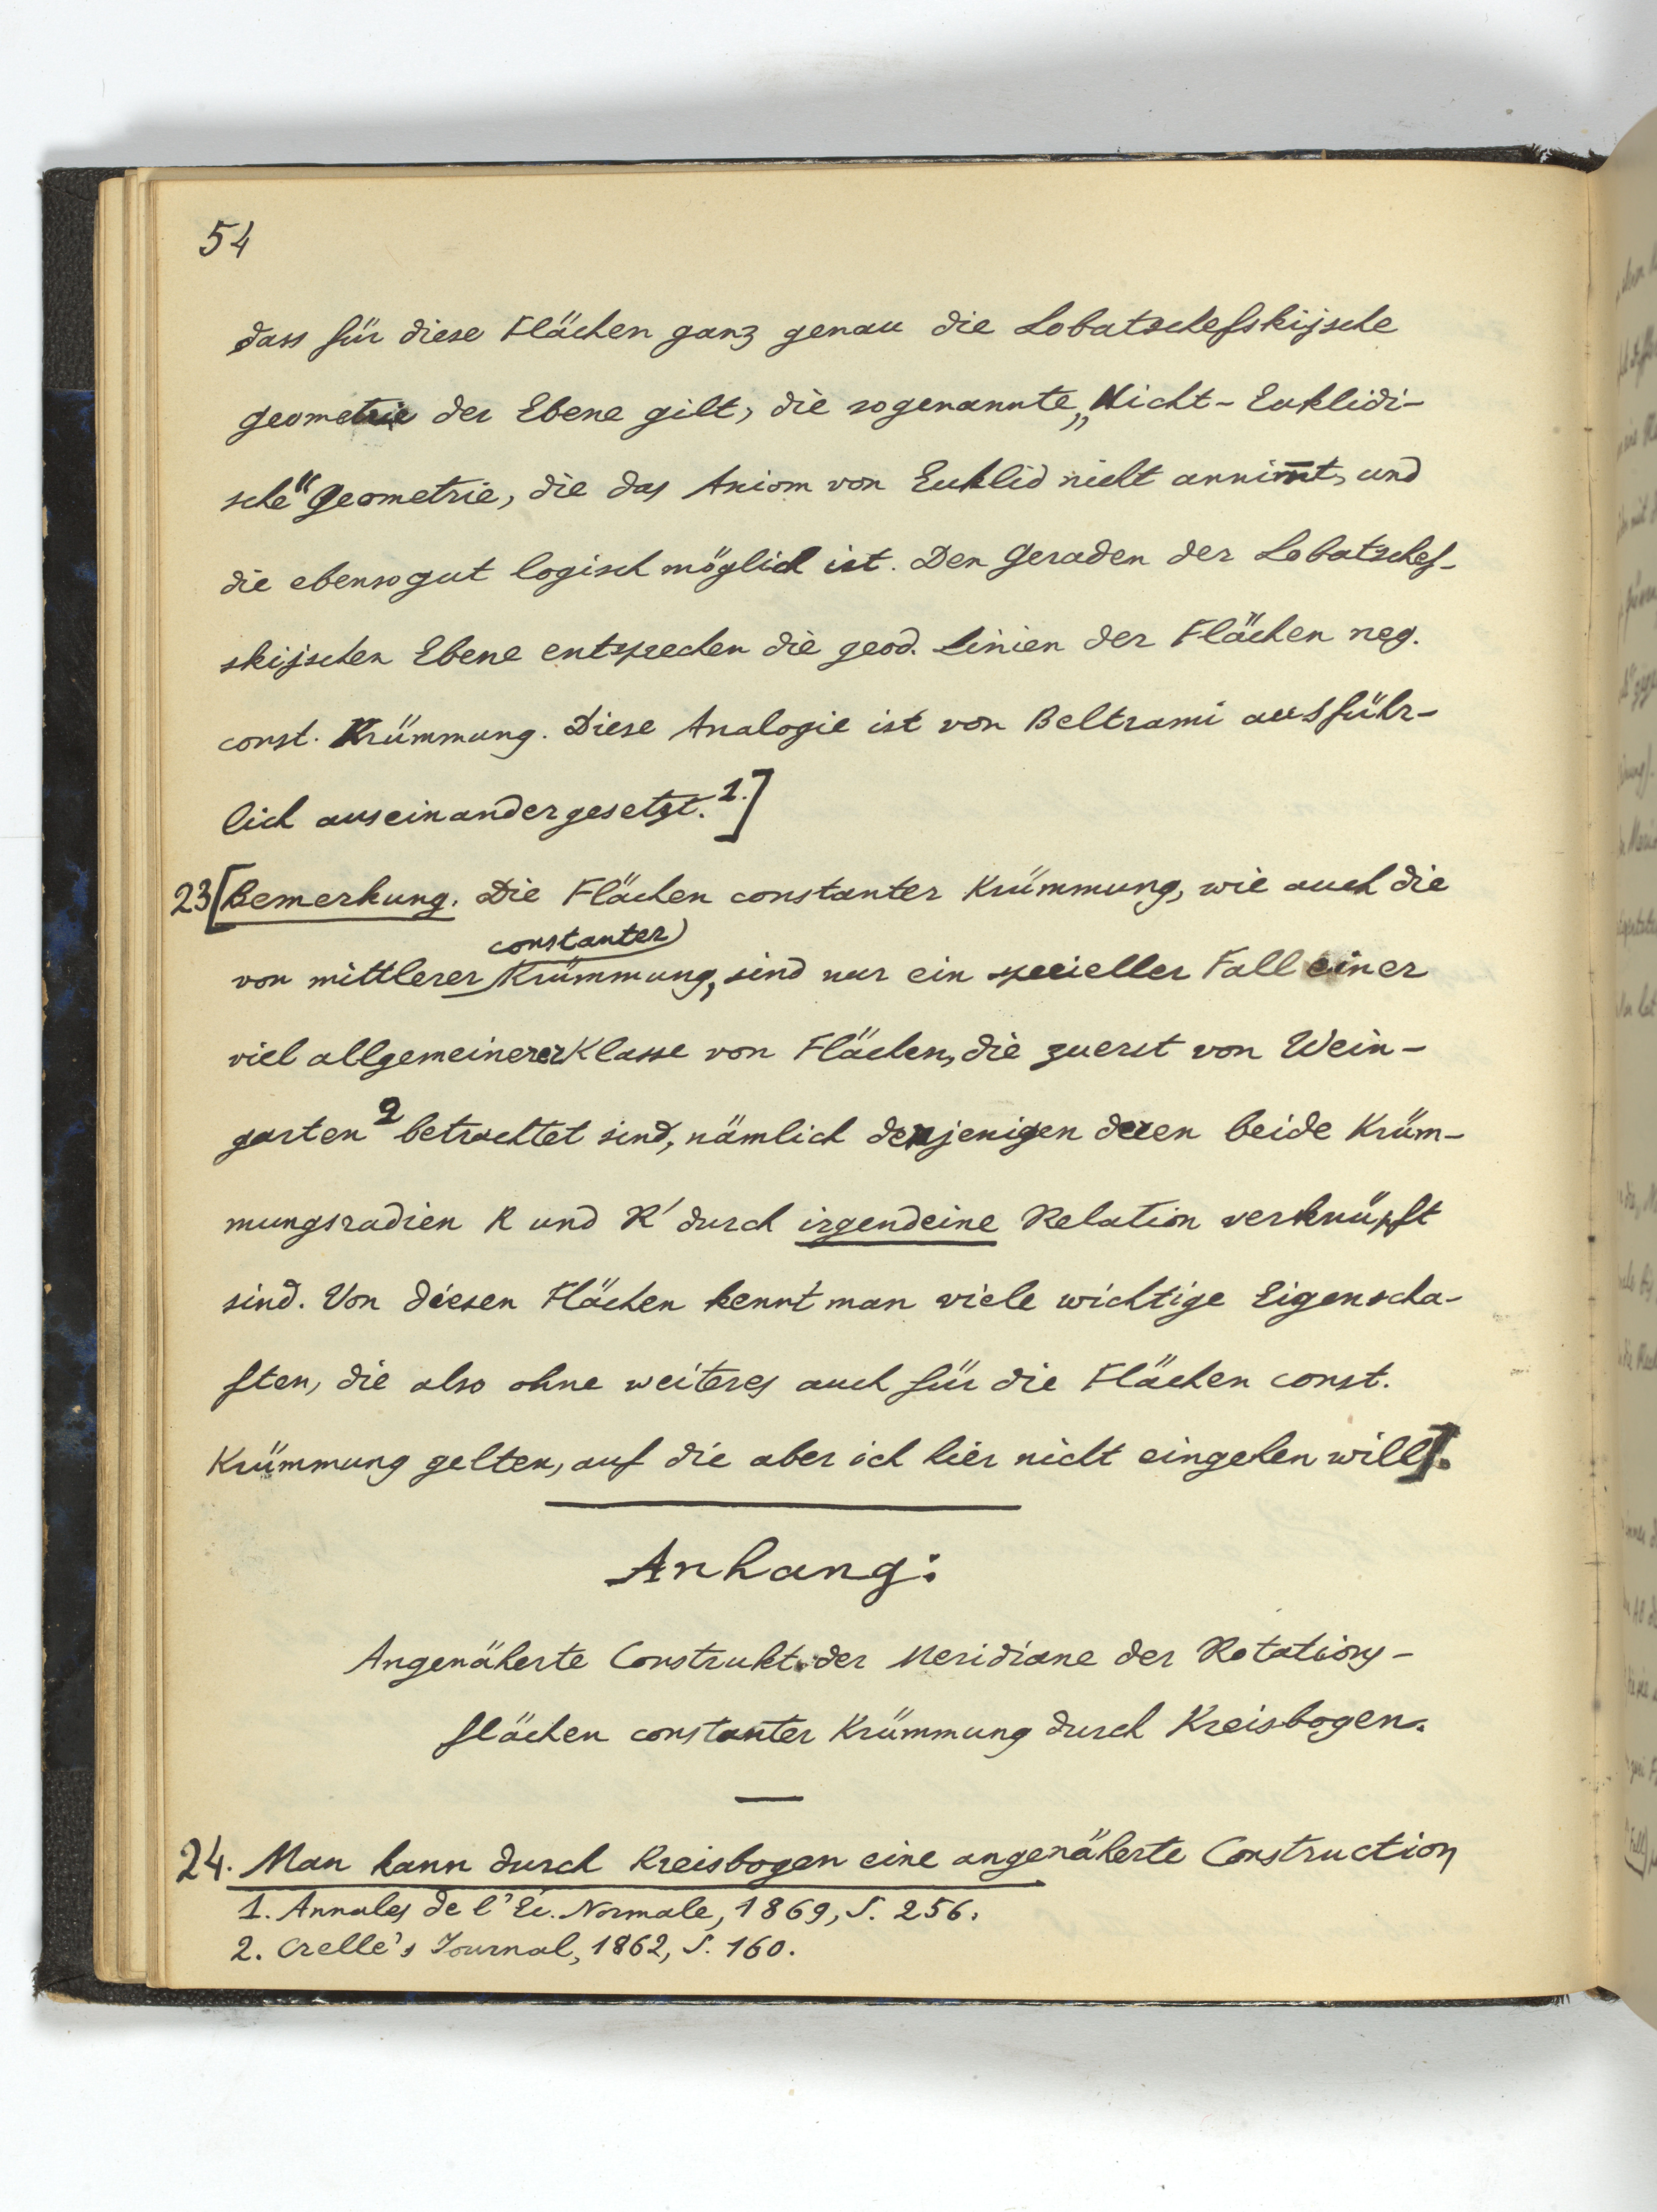 54
dass für diese Flächen ganz genau die Lobatschefskijsche
Geometrie der Ebene gilt, die sogenannte „Nicht-Euklidi-
sche" Geometrie, die das Axiom von Euklid nicht annim̅t, und
die ebensogut logisch möglich ist. Den Geraden der Lobatschef-
skijschen Ebene entsprechen die geod. Linien der Flächen neg.
const. Krümmung. Diese Analogie ist von Beltrami ausführ-
lich auseinandergesetzt.1.]
23[Bemerkung. Die Flächen constanter Krümmung, wie auch die
constanter
von mittlerer Krümmung, sind nur ein specieller Fall einer
viel allgemeinerer Klasse von Flächen, die zuerst von Wein-
garten2 betrachtet sind, nämlich denjenigen deren beide Krüm-
mungsradien R und R' durch irgendeine Relation verknüpft
sind. Von diesen Flächen kennt man viele wichtige Eigenscha-
ften, die also ohne weiteres auch für die Flächen const.
Krümmung gelten, auf die aber ich hier nicht eingehen will].
Anhang:
Angenäherte Construkt. der Meridiane der Rotations-
flächen constanter Krümmung durch Kreisbogen.
24. Man kann durch Kreisbogen eine angenäherte Construction
1. Annales de l'Éc. Normale, 1869, S. 256.
2. Crelle's Journal, 1862, S. 160.